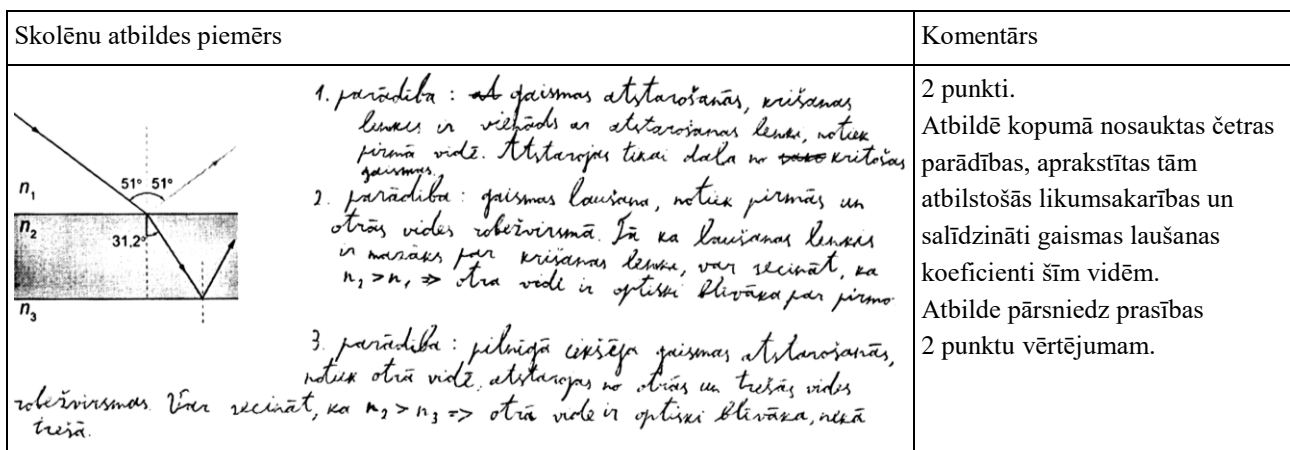 Skolēnu atbildes piemērs
Komentārs
1. parādība : gaismas atstarošanās, krišanas
lenķis ir vienāds ar atstarošanas lenķi, notiek
pirmā vidē. Atstarojas tikai daļa no kritošas
gaismas.
2. parādība : gaismas laušana, notiek pirmās un
otrās vides robežvirsmā. Tā ka laušanas lenķis
ir mazāks par krišanas lenķi, var secināt, ka
n₂ > n₁ => otra vide ir optiski blīvāka par pirmo
3. parādība : pilnīgā iekšēja gaismas atstarošanās,
notiek otrā vidē, atstarojas no otrās un trešās vides
robežvirsmas. Var secināt, ka n₂ > n₃ => otrā vide ir optiski blīvāka, nekā
trešā.
n₁
51° 51°
n₂
31,2°
n₃
2 punkti.
Atbildē kopumā nosauktas četras
parādības, aprakstītas tām
atbilstošās likumsakarības un
salīdzināti gaismas laušanas
koeficienti šīm vidēm.
Atbilde pārsniedz prasības
2 punktu vērtējumam.